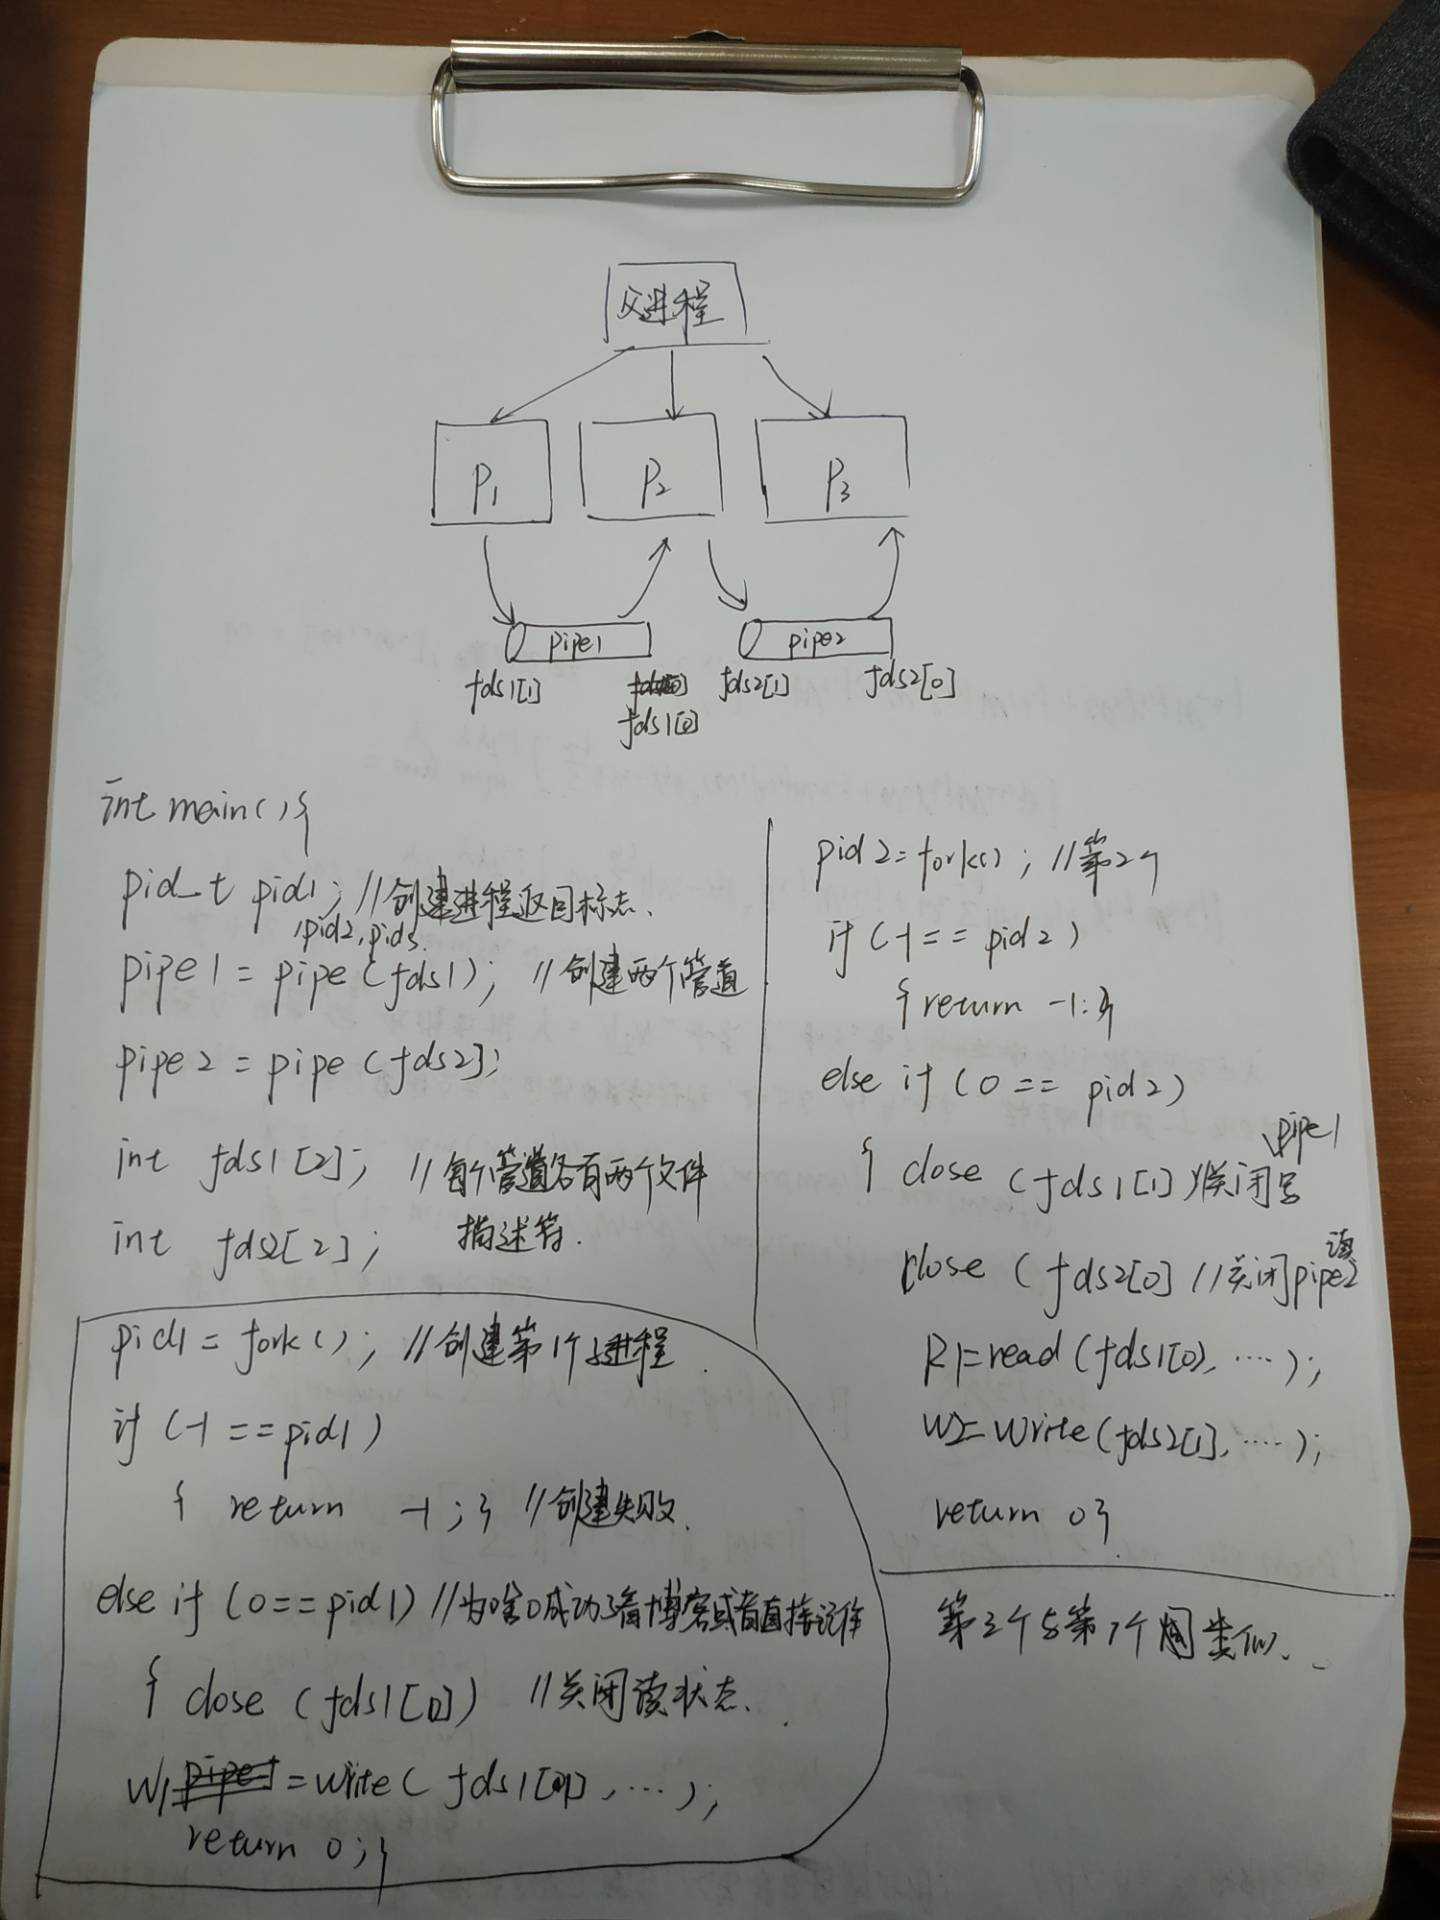 父进程
P1 P2 P3
pipe1 pipe2
fds1[1] fds2[1] fds2[0]
fds1[0]
int main(){
pid_t pid1; //创建进程返回标志.
,pid2,pid3.
pipe1 = pipe(fds1); //创建两个管道
pipe2 = pipe(fds2);
int fds1[2]; //每个管道各有两个文件
int fds2[2]; 描述符.
pid1 = fork(); //创建第1个子进程.
if (-1 == pid1)
{ return -1;} //创建失败.
else if (0 == pid1) //为啥0成功了看博客或者直接记住
{ close (fds1[0]) //关闭读状态.
W1 = write( fds1[1], ...);
return 0;}
pid2 = fork(); //第2个
if (-1 == pid2)
{ return -1;}
else if (0 == pid2)
pipe1
{ close (fds1[1]) //关闭写
读
close (fds2[0] //关闭pipe2
R1=read (fds1[0), ....);
W2=write(fds2[1], ....);
return 0}
第3个与第1个类似.